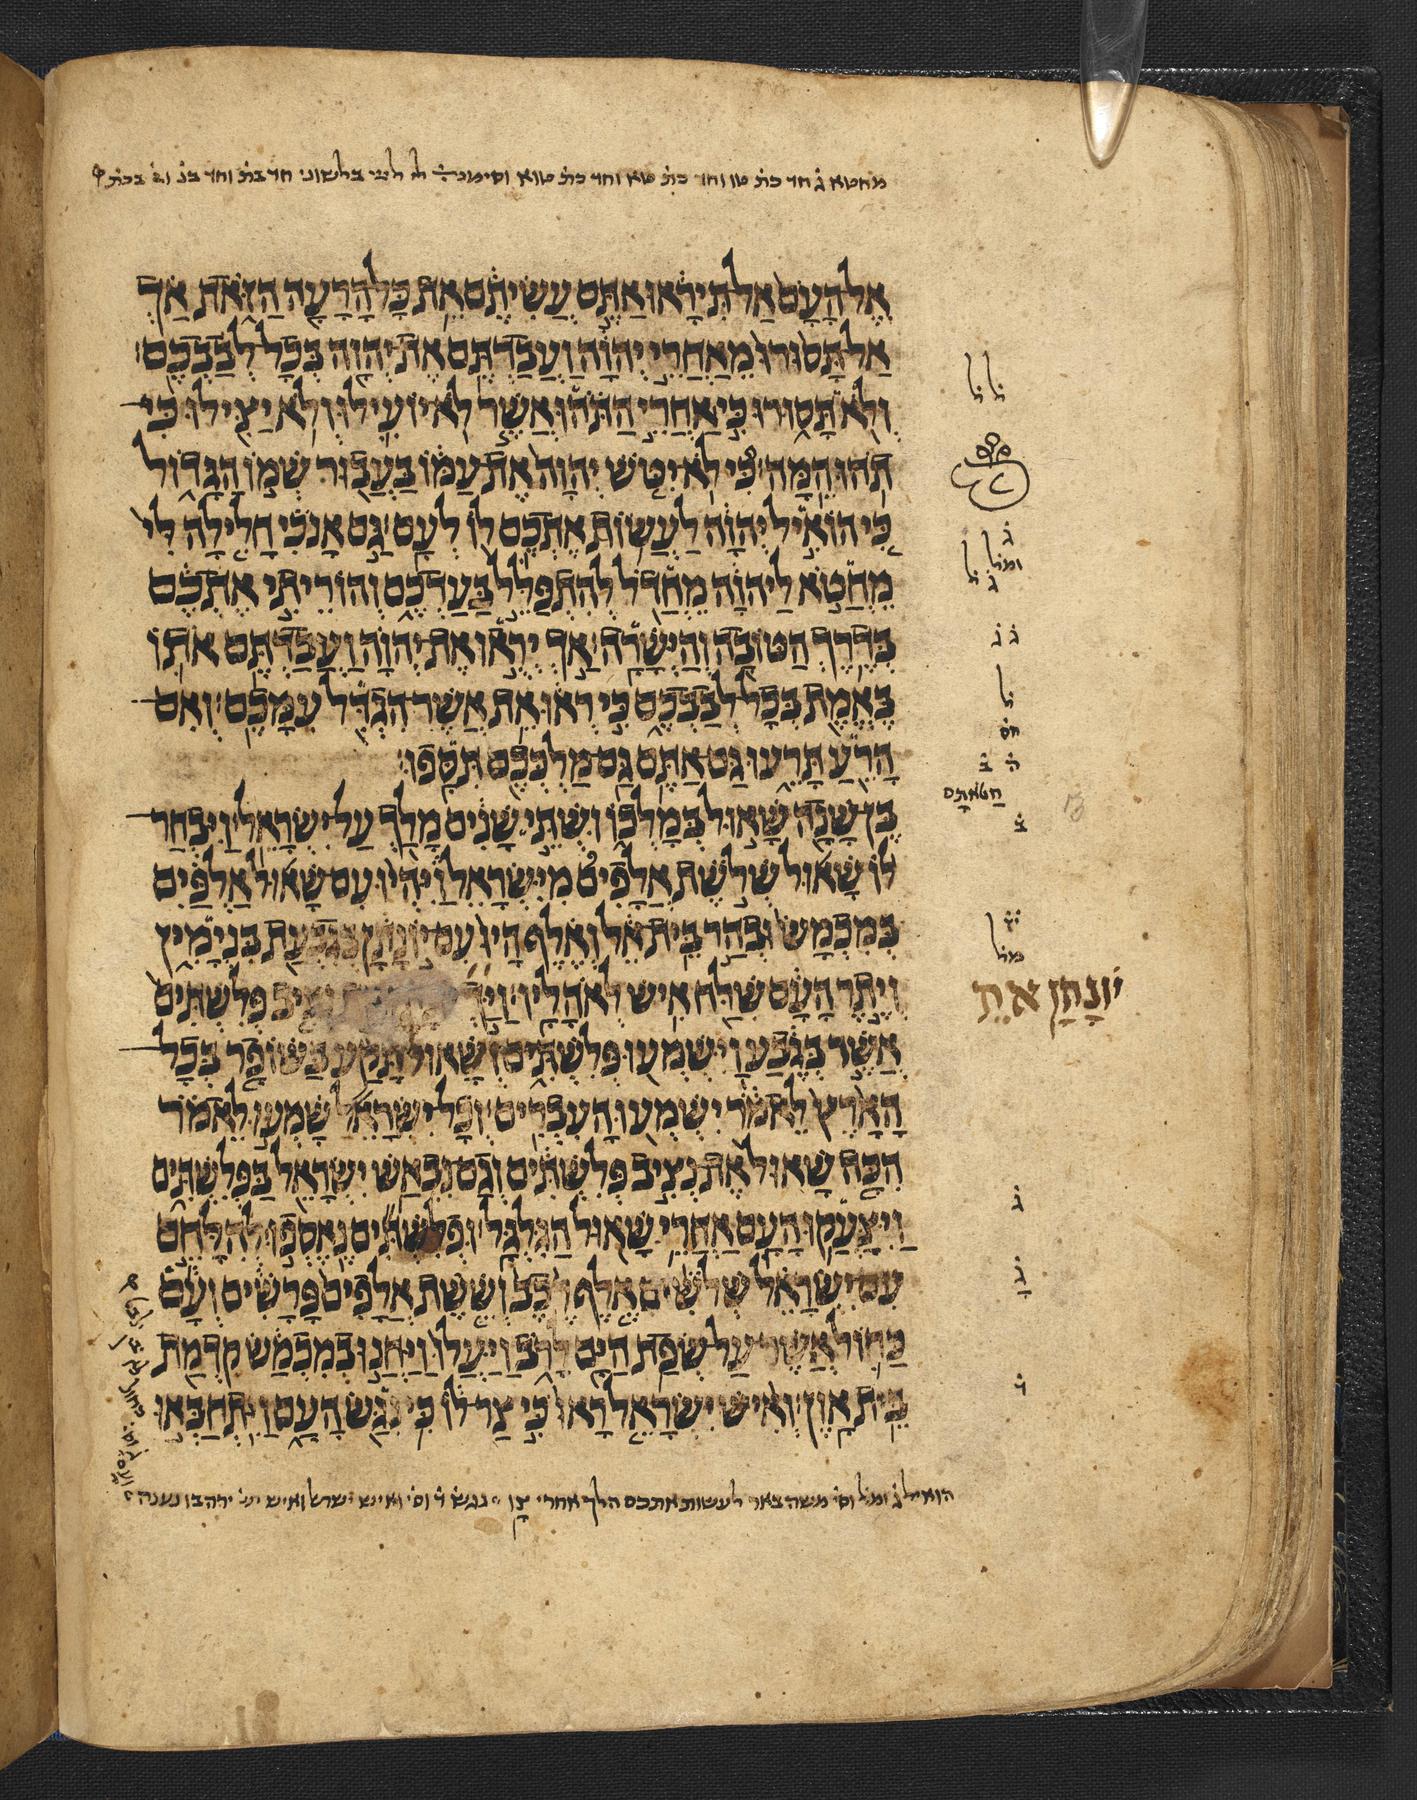 מחטא ג֗ חד כת֗ טו וחד כת֗ טא וחד כת֗ טוא
אֶל הָעָם אַל תִּירָאוּ אַתֶּם עֲשִׂיתֶם אֵת כָּל הָרָעָה הַזֹּאת אַךְ
אַל תָּסוּרוּ מֵאַחֲרֵי יְהוָה וַעֲבַדְתֶּם אֶת יְהוָה בְּכָל לְבַבְכֶם׃
וְלֹא תָּסוּרוּ כִּי אַחֲרֵי הַתֹּהוּ אֲשֶׁר לֹא יוֹעִילוּ וְלֹא יַצִּילוּ כִּי
תֹהוּ הֵמָּה׃ כִּי לֹא יִטֹּשׁ יְהוָה אֶת עַמּוֹ בַּעֲבוּר שְׁמוֹ הַגָּדוֹל
כִּי הוֹאִיל יְהוָה לַעֲשׂוֹת אֶתְכֶם לוֹ לְעָם׃ גַּם אָנֹכִי חָלִילָה לִּי
מֵחֲטֹא לַיהוָה מֵחֲדֹל לְהִתְפַּלֵּל בַּעַדְכֶם וְהוֹרֵיתִי אֶתְכֶם
בְּדֶרֶךְ הַטּוֹבָה וְהַיְשָׁרָה׃ אַךְ יְראוּ אֶת יְהוָה וַעֲבַדְתֶּם אֹתוֹ
בֶּאֱמֶת בְּכָל לְבַבְכֶם כִּי רְאוּ אֵת אֲשֶׁר הִגְדִּל עִמָּכֶם׃ וְאִם
הָרֵעַ תָּרֵעוּ גַּם אַתֶּם גַּם מַלְכְּכֶם תִּסָּפוּ׃
בֶּן שָׁנָה שָׁאוּל בְּמָלְכוֹ וּשְׁתֵּי שָׁנִים מָלַךְ עַל יִשְׂרָאֵל׃ וַיִּבְחַר
לוֹ שָׁאוּל שְׁלֹשֶׁת אֲלָפִים מִיִּשְׂרָאֵל וַיִּהְיוּ עִם שָׁאוּל אַלְפַּיִם
בְּמִכְמָשׂ וּבְהַר בֵּית אֵל וְאֶלֶף הָיוּ עִם יוֹנָתָן בְּגִבְעַת בִּנְיָמִין
וְיֶתֶר הָעָם שִׁלַּח אִישׁ לְאֹהָלָיו׃ וַיַּךְ נְצִיב פְּלִשְׁתִּים
יוֹנָתָן אֵת
אֲשֶׁר בְּגֶבַע וַיִּשְׁמְעוּ פְּלִשְׁתִּים וְשָׁאוּל תָּקַע בַּשּׁוֹפָר בְּכָל
הָאָרֶץ לֵאמֹר יִשְׁמְעוּ הָעִבְרִים׃ וְכָל יִשְׂרָאֵל שָׁמְעוּ לֵאמֹר
הִכָּה שָׁאוּל אֶת נְצִיב פְּלִשְׁתִּים וְגַם נִבְאַשׁ יִשְׂרָאֵל בַּפְּלִשְׁתִּים
וַיִּצָּעֲקוּ הָעָם אַחֲרֵי שָׁאוּל הַגִּלְגָּל׃ וּפְלִשְׁתִּים נֶאֶסְפוּ לְהִלָּחֵם
עִם יִשְׂרָאֵל שְׁלֹשִׁים אֶלֶף רֶכֶב וְשֵׁשֶׁת אֲלָפִים פָּרָשִׁים וְעָם
כַּחוֹל אֲשֶׁר עַל שְׂפַת הַיָּם לָרֹב וַיַּעֲלוּ וַיַּחֲנוּ בְמִכְמָשׂ קִדְמַת
בֵּית אָוֶן׃ וְאִישׁ יִשְׂרָאֵל רָאוּ כִּי צַר לוֹ כִּי נִגַּשׂ הָעָם וַיִּתְחַבְּאוּ
הואיל ג֗ ומל וסי֗ משה באר לעשות אתכם הלך אחרי צו